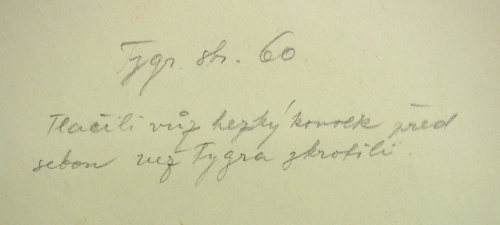 Tygr. str. 60.
Tlačili vůz hezký kousek před
sebou než Tygra zkrotili.